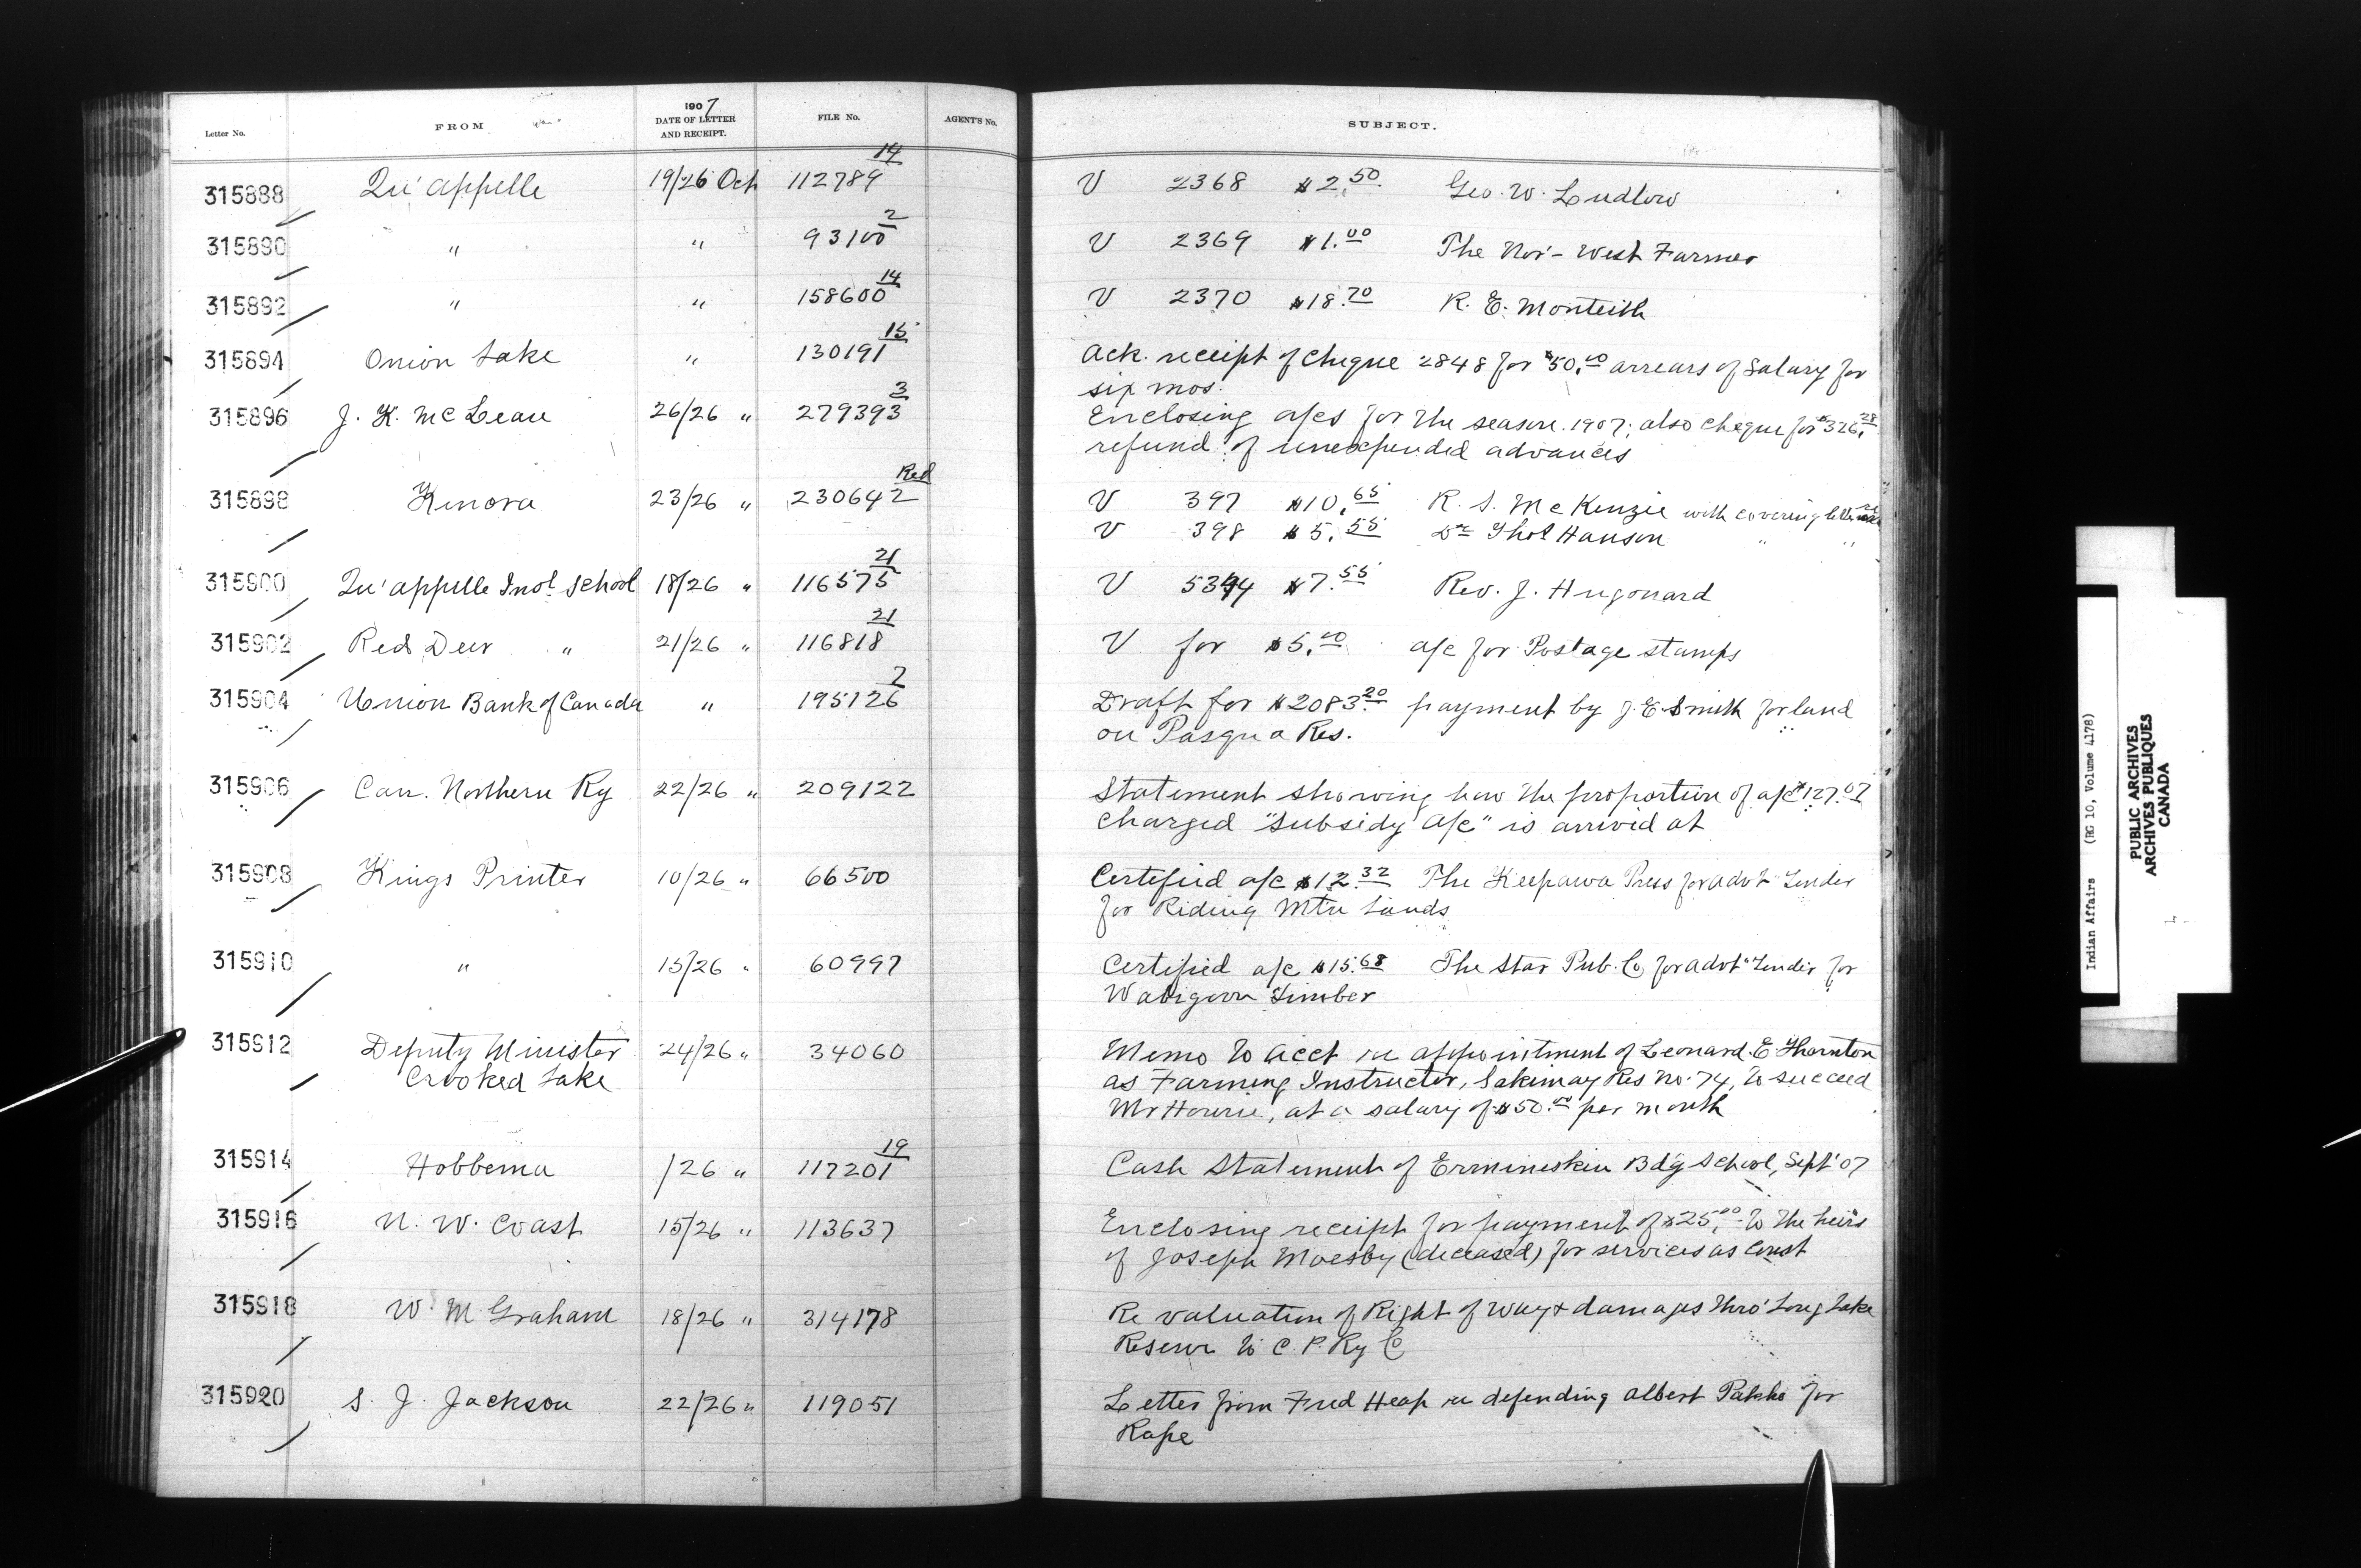 1907
Letter No. FROM DATE OF LETTER AND RECEIPT. FILE No. AGENT'S No. SUBJECT.
315888 Qu'appelle 19/26 Oct 112789 14 V 2368 $2.50 Geo. W. Ludlow
315890 " " 93100 2 V 2369 $1.00 The Nor'-West Farmer
315892 " " 158600 14 V 2370 $18.70 R. E. Monteith
315894 Onion Lake " 130191 15 Ack. receipt of Cheque 2848 for $50.00 arrears of Salary for
six mos.
315896 J. K. McLean 26/26 " 279393 3 Enclosing a/cs for the season 1907; also cheque for $326.28
refund of unexpended advances
315898 Kenora 23/26 " 230642 Red V 397 $10.65 R. S. McKenzie with covering letter
V 398 $5.55 Dr Thos Hanson " "
315900 Qu'appelle Indl School 18/26 " 116575 21 V 5394 $7.55 Rev. J. Hugonard
315902 Red Deer " 21/26 " 116818 21 V for $5.00 a/c for Postage stamps
315904 Union Bank of Canada " 195126 2 Draft for $2083.20 payment by J. E. Smith for land
on Pasqua Res.
315906 Can. Northern Ry 22/26 " 209122 Statement showing how the proportion of a/c $127.07
charged "Subsidy a/c" is arrived at
315908 Kings Printer 10/26 " 66500 Certified a/c $12.32 The Keepawa Press for advt "Tender
for Riding Mtn Lands
315910 " 15/26 " 60997 Certified a/c $15.68 The Star Pub. Co for advt "Tender for
Wabigoon Timber
315912 Deputy Minister 24/26 " 34060 Memo to Acct re appointment of Leonard E Thornton
Crooked Lake as Farming Instructor, Sakimay Res No. 74, to succeed
Mr Hourie, at a salary of $50.00 per month
315914 Hobbema /26 " 117201 19 Cash Statement of Ermineskin Bdg School, Sept '07
315916 N. W. Coast 15/26 " 113637 Enclosing receipt for payment of $25.00 to the heirs
of Joseph Moesby (deceased) for services as Const
315918 W. M Graham 18/26 " 314178 Re valuation of Right of Way & damages thro' Long Lake
Reserve to C. P. Ry Co
315920 S. J. Jackson 22/26 " 119051 Letter from Fred Heap re defending Albert for
Rape
Indian Affairs (RG 10, Volume 4178)
PUBLIC ARCHIVES
ARCHIVES PUBLIQUES
CANADA